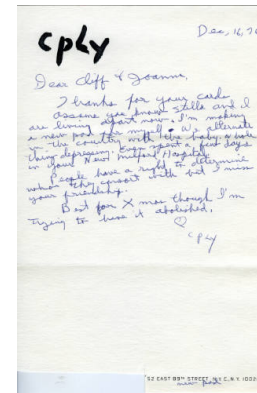 cply
Dec, 16, 76
Dear Cliff & Joanna,
Thanks for your card.
assume you know Stella and I
are living apart now. I'm making
a new pad for myself. We alternate
in the country with the baby. Whole
thing depressing. Even spent a few days
in your New Milford Hospital.
People have a right to determine
whom they consort with but I miss
your friendship.
Best for X mas though I'm
trying to have it abolished.
cply
52 EAST 89th STREET, N.Y.C., N.Y. 1002
new pad